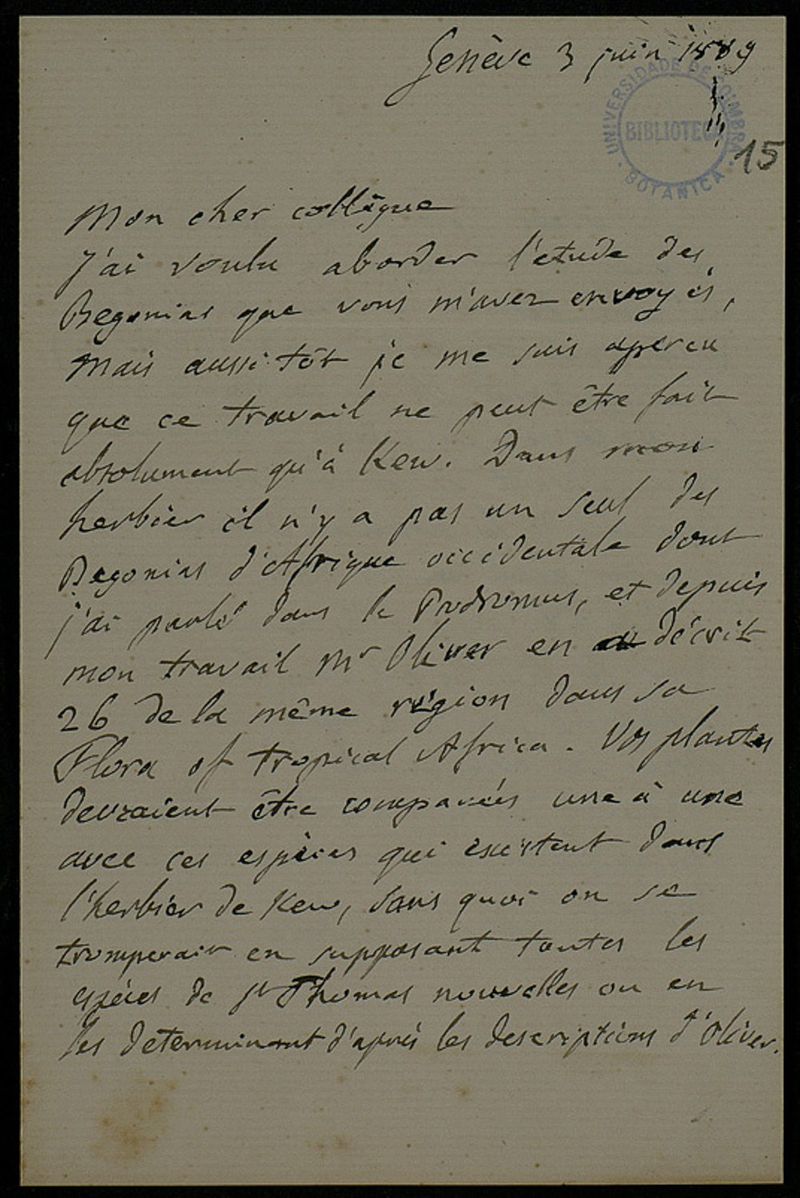 Genève 3 juin 1889
UNIVERSIDADE DE COIMBRA
BIBLIOTECA
BOTANICA
15
Mon cher collègue
J'ai voulu aborder l'etude des
Begonias que vous m'avez envoyés,
mais aussitôt je me suis aperçu
que ce travail ne peut être fait
absolument qu'à Kew. Dans mon
herbier il n'y a pas un seul des
Begonias d'Afrique occidentale dont
j'ai parlé dans le Prodromus, et depuis
mon travail Mr Oliver en décrit
26 de la même région dans sa
Flora of tropical Africa. Vos plantes
devraient être comparées une à une
avec ces espèces qui existent dans
l'herbier de Kew, sans quoi on se
tromperait en supposant toutes les
espèces de St Thomas nouvelles ou en
les determinant d'après les descriptions d'Oliver.